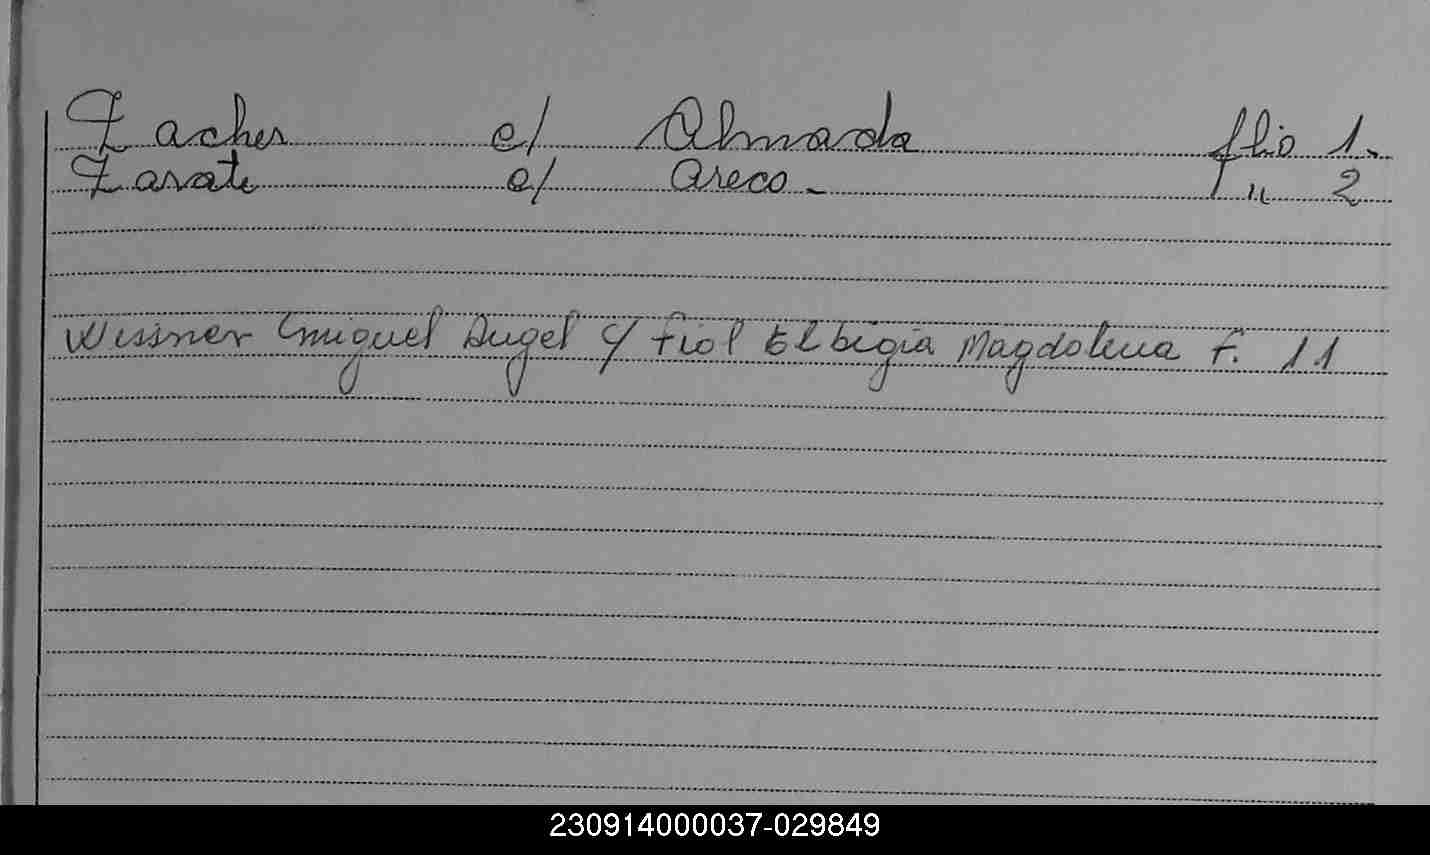 Zacher c/ Almada flio 1.
Zarate c/ Areco - " 2
Wissner Miguel Angel c/ Fiol Elbigia Magdalena F. 11
230914000037-029849